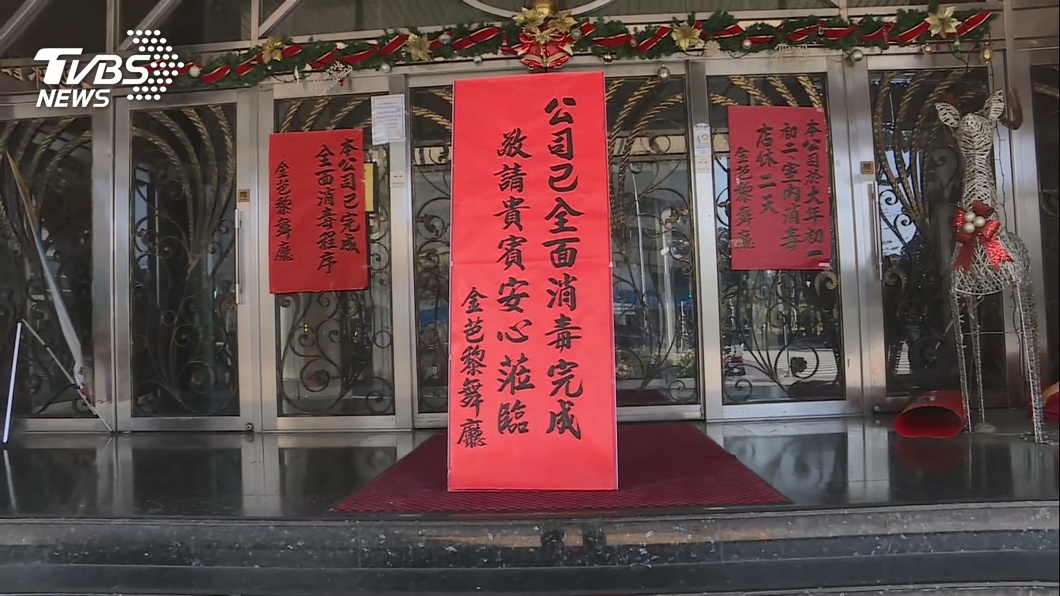 TVBS
NEWS
公司已全面消毒完成
敬請貴賓安心蒞臨
金芭黎舞廳
本公司已完成
全面消毒程序
金芭黎舞廳
本公司於大年初一
初二室內消毒
店休二天
金芭黎舞廳